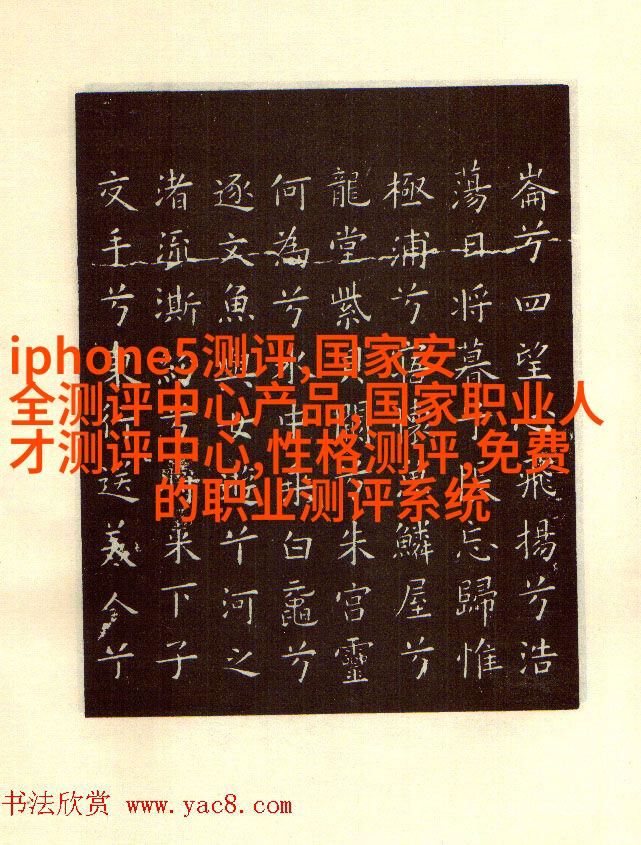 崙兮四望心飛揚兮浩
蕩日將暮兮悵忘歸惟
極浦兮懷鱗屋兮
龍堂紫貝闕兮朱宮靈
何為兮水中乘白黿兮
逐文魚與女遊兮河之
渚流澌紛兮將来下子
交手兮東行送美人兮
iphone5测评,国家安
全测评中心产品,国家职业人
才测评中心,性格测评,免费
的职业测评系统
书法欣赏 www.yac8.com